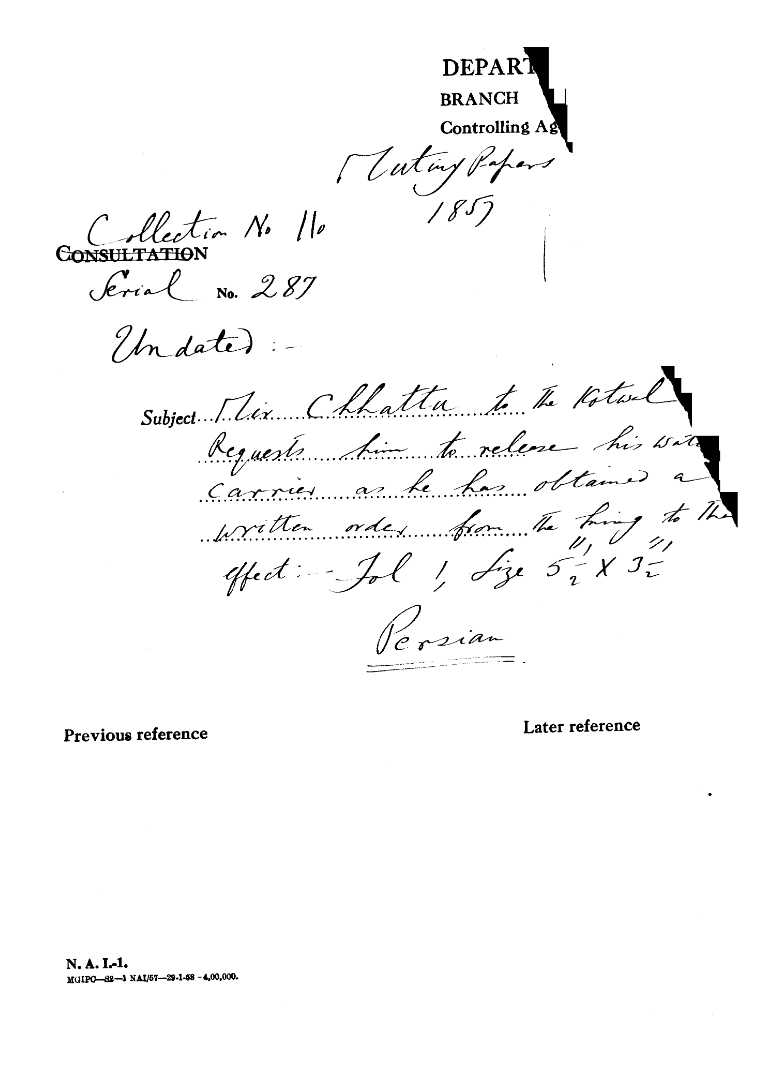 DEPART
BRANCH
Controlling Ag
Mutiny Papers
1857
Collection No 110
CONSULTATION
Serial No. 287
Undated :-
Subject Mir Chhattu to the Kotwal
Requests him to release his wat
carrier as he has obtained a
written order from the king to the
effect:- Fol 1, Size 5½" X 3½"
Persian
Previous reference
Later reference
N. A. I.-1.
MGIPC—82—1 NAI/57—29-1-58 -4,00,000.